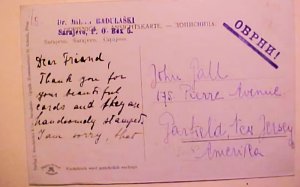 RADULAŠKI
Sarajevo, P. O. Box
ОБРНИ!
Sarajevo. Sarajevo. Сарајево
Dear Friend,
Thank you for
your beautiful
cards and they are
handsomely stamped.
I am sorry, that
John Pall
175 Pierre Avenue
Garfield, New Jersey
Amerika